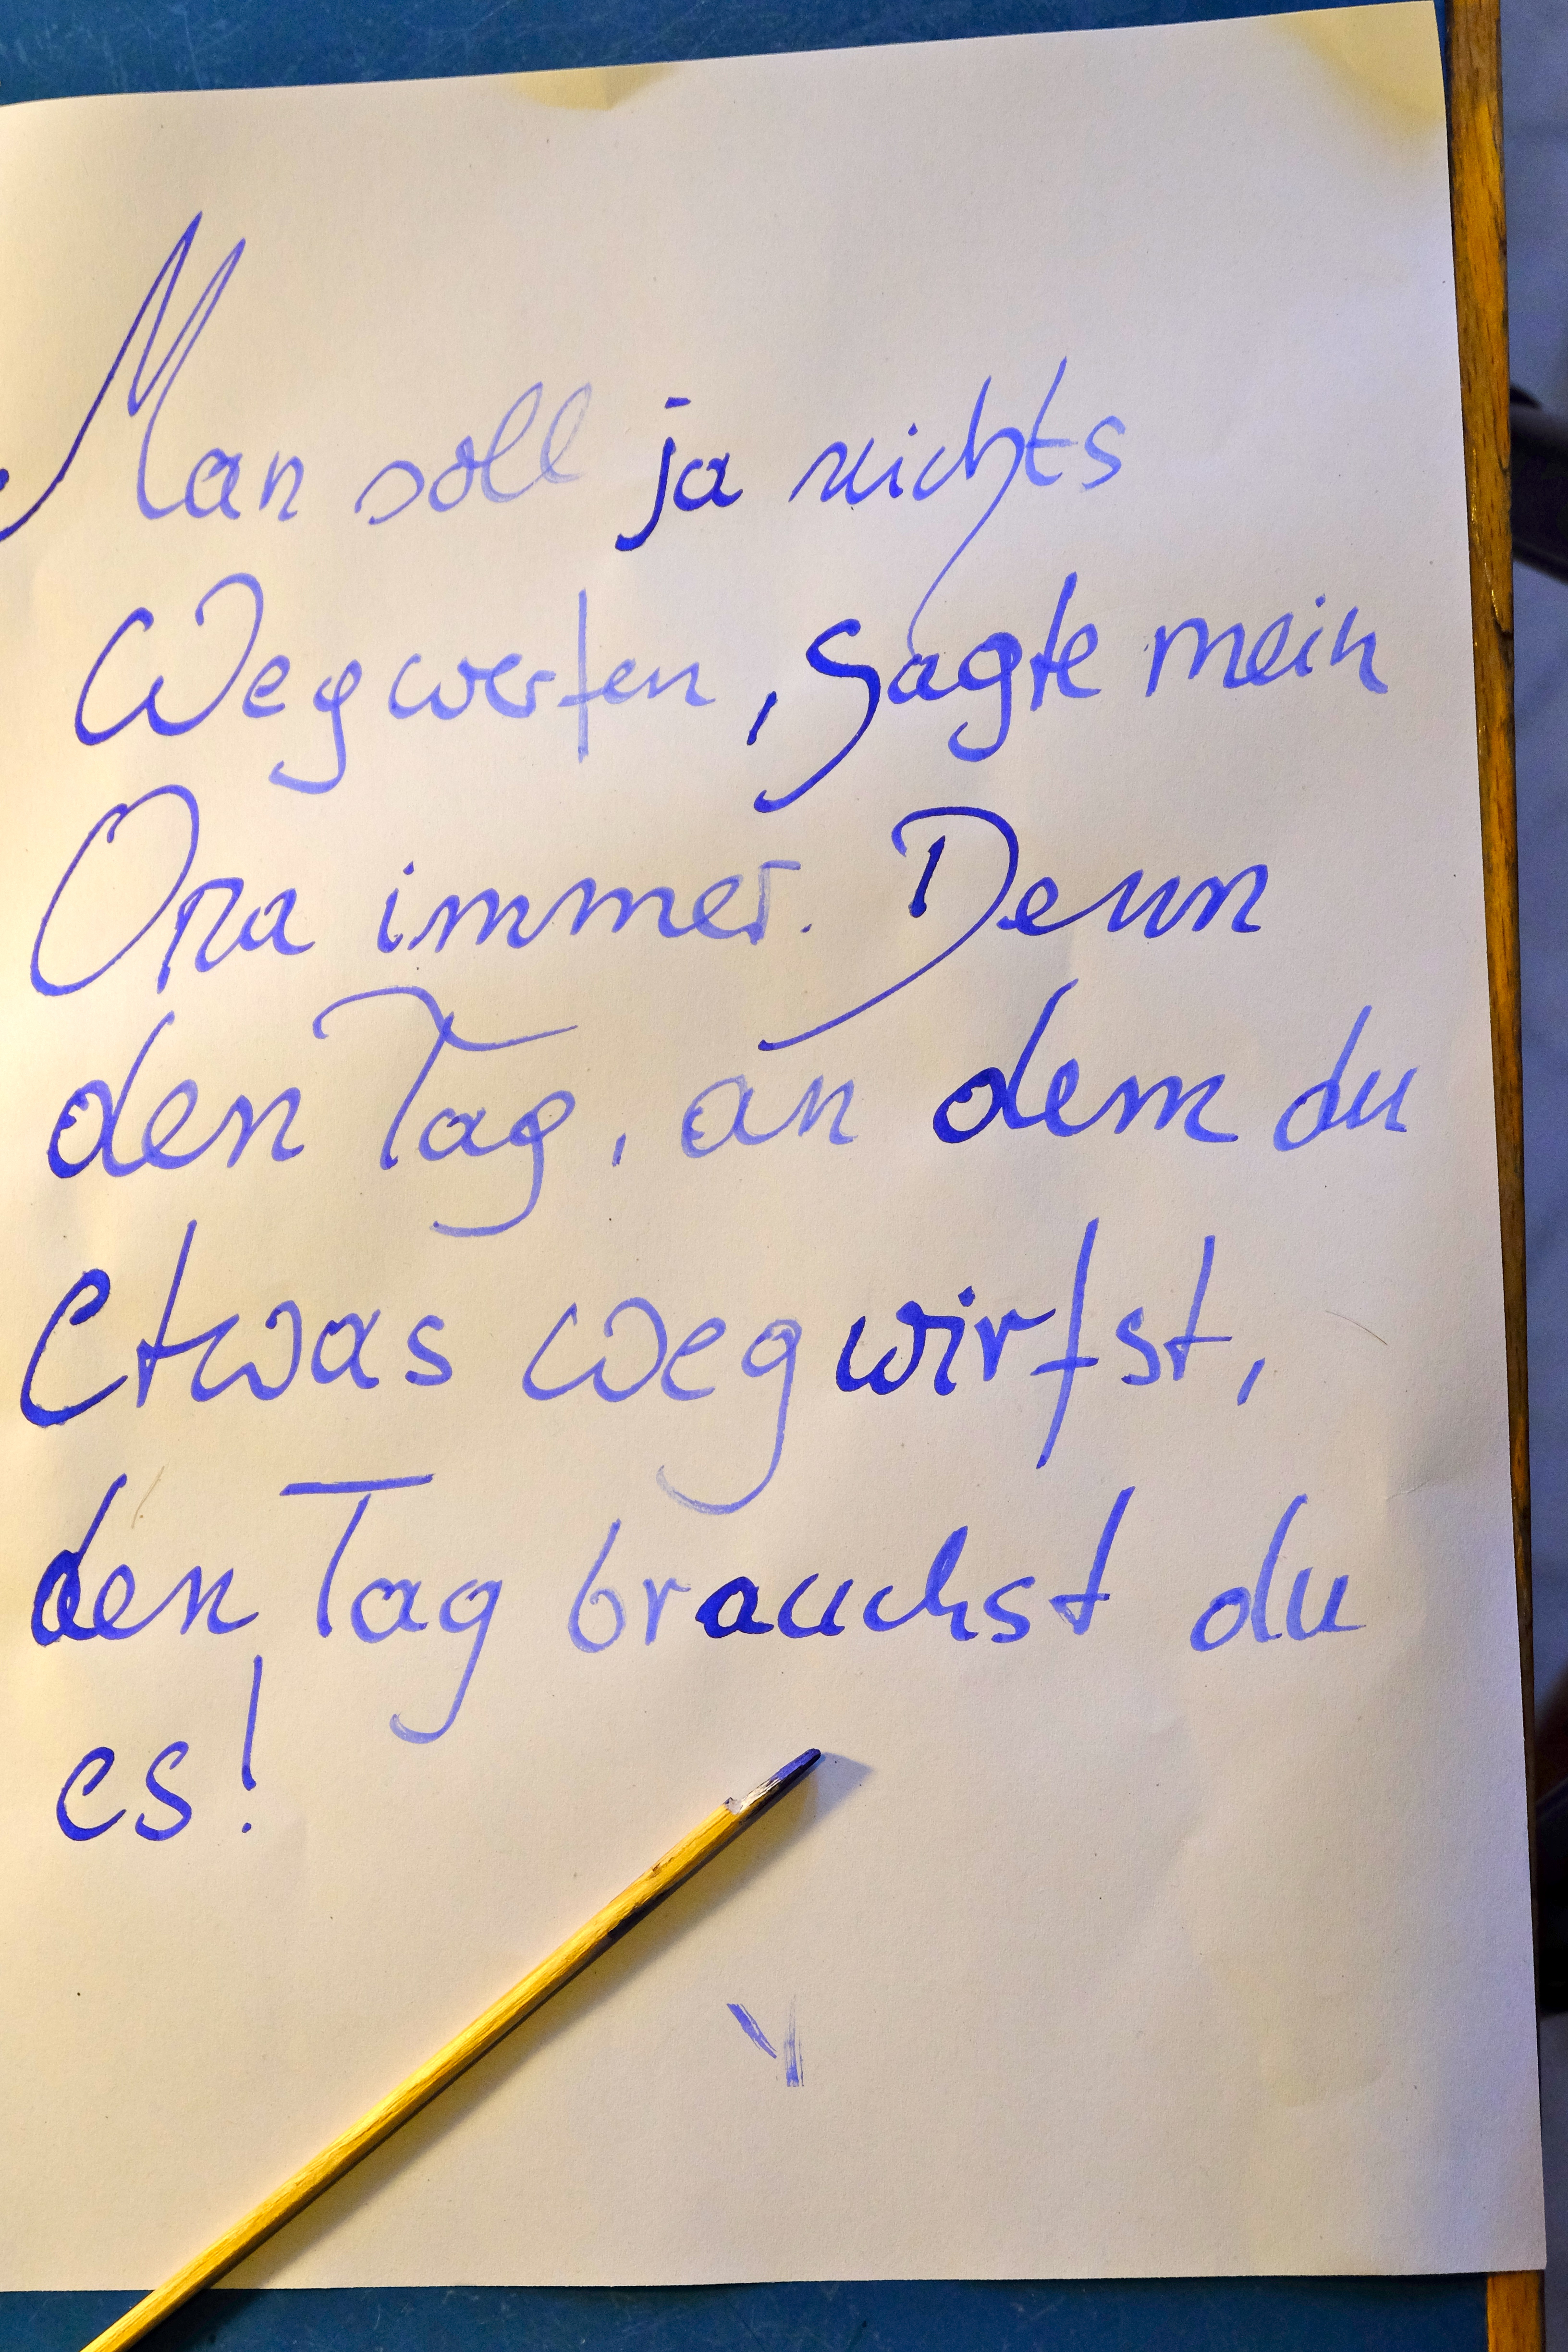 Man soll ja nichts
Wegwerfen, sagte mein
Opa immer. Denn
den Tag, an dem du
etwas wegwirfst,
den Tag brauchst du
es!